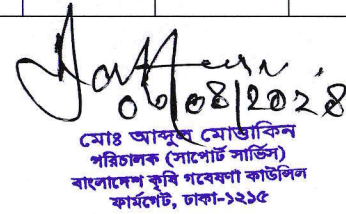 ০৬/০৪/২০২৪
মোঃ আব্দুল মোত্তাকিন
পরিচালক (সাপোর্ট সার্ভিস)
বাংলাদেশ কৃষি গবেষণা কাউন্সিল
ফার্মগেট, ঢাকা-১২১৫